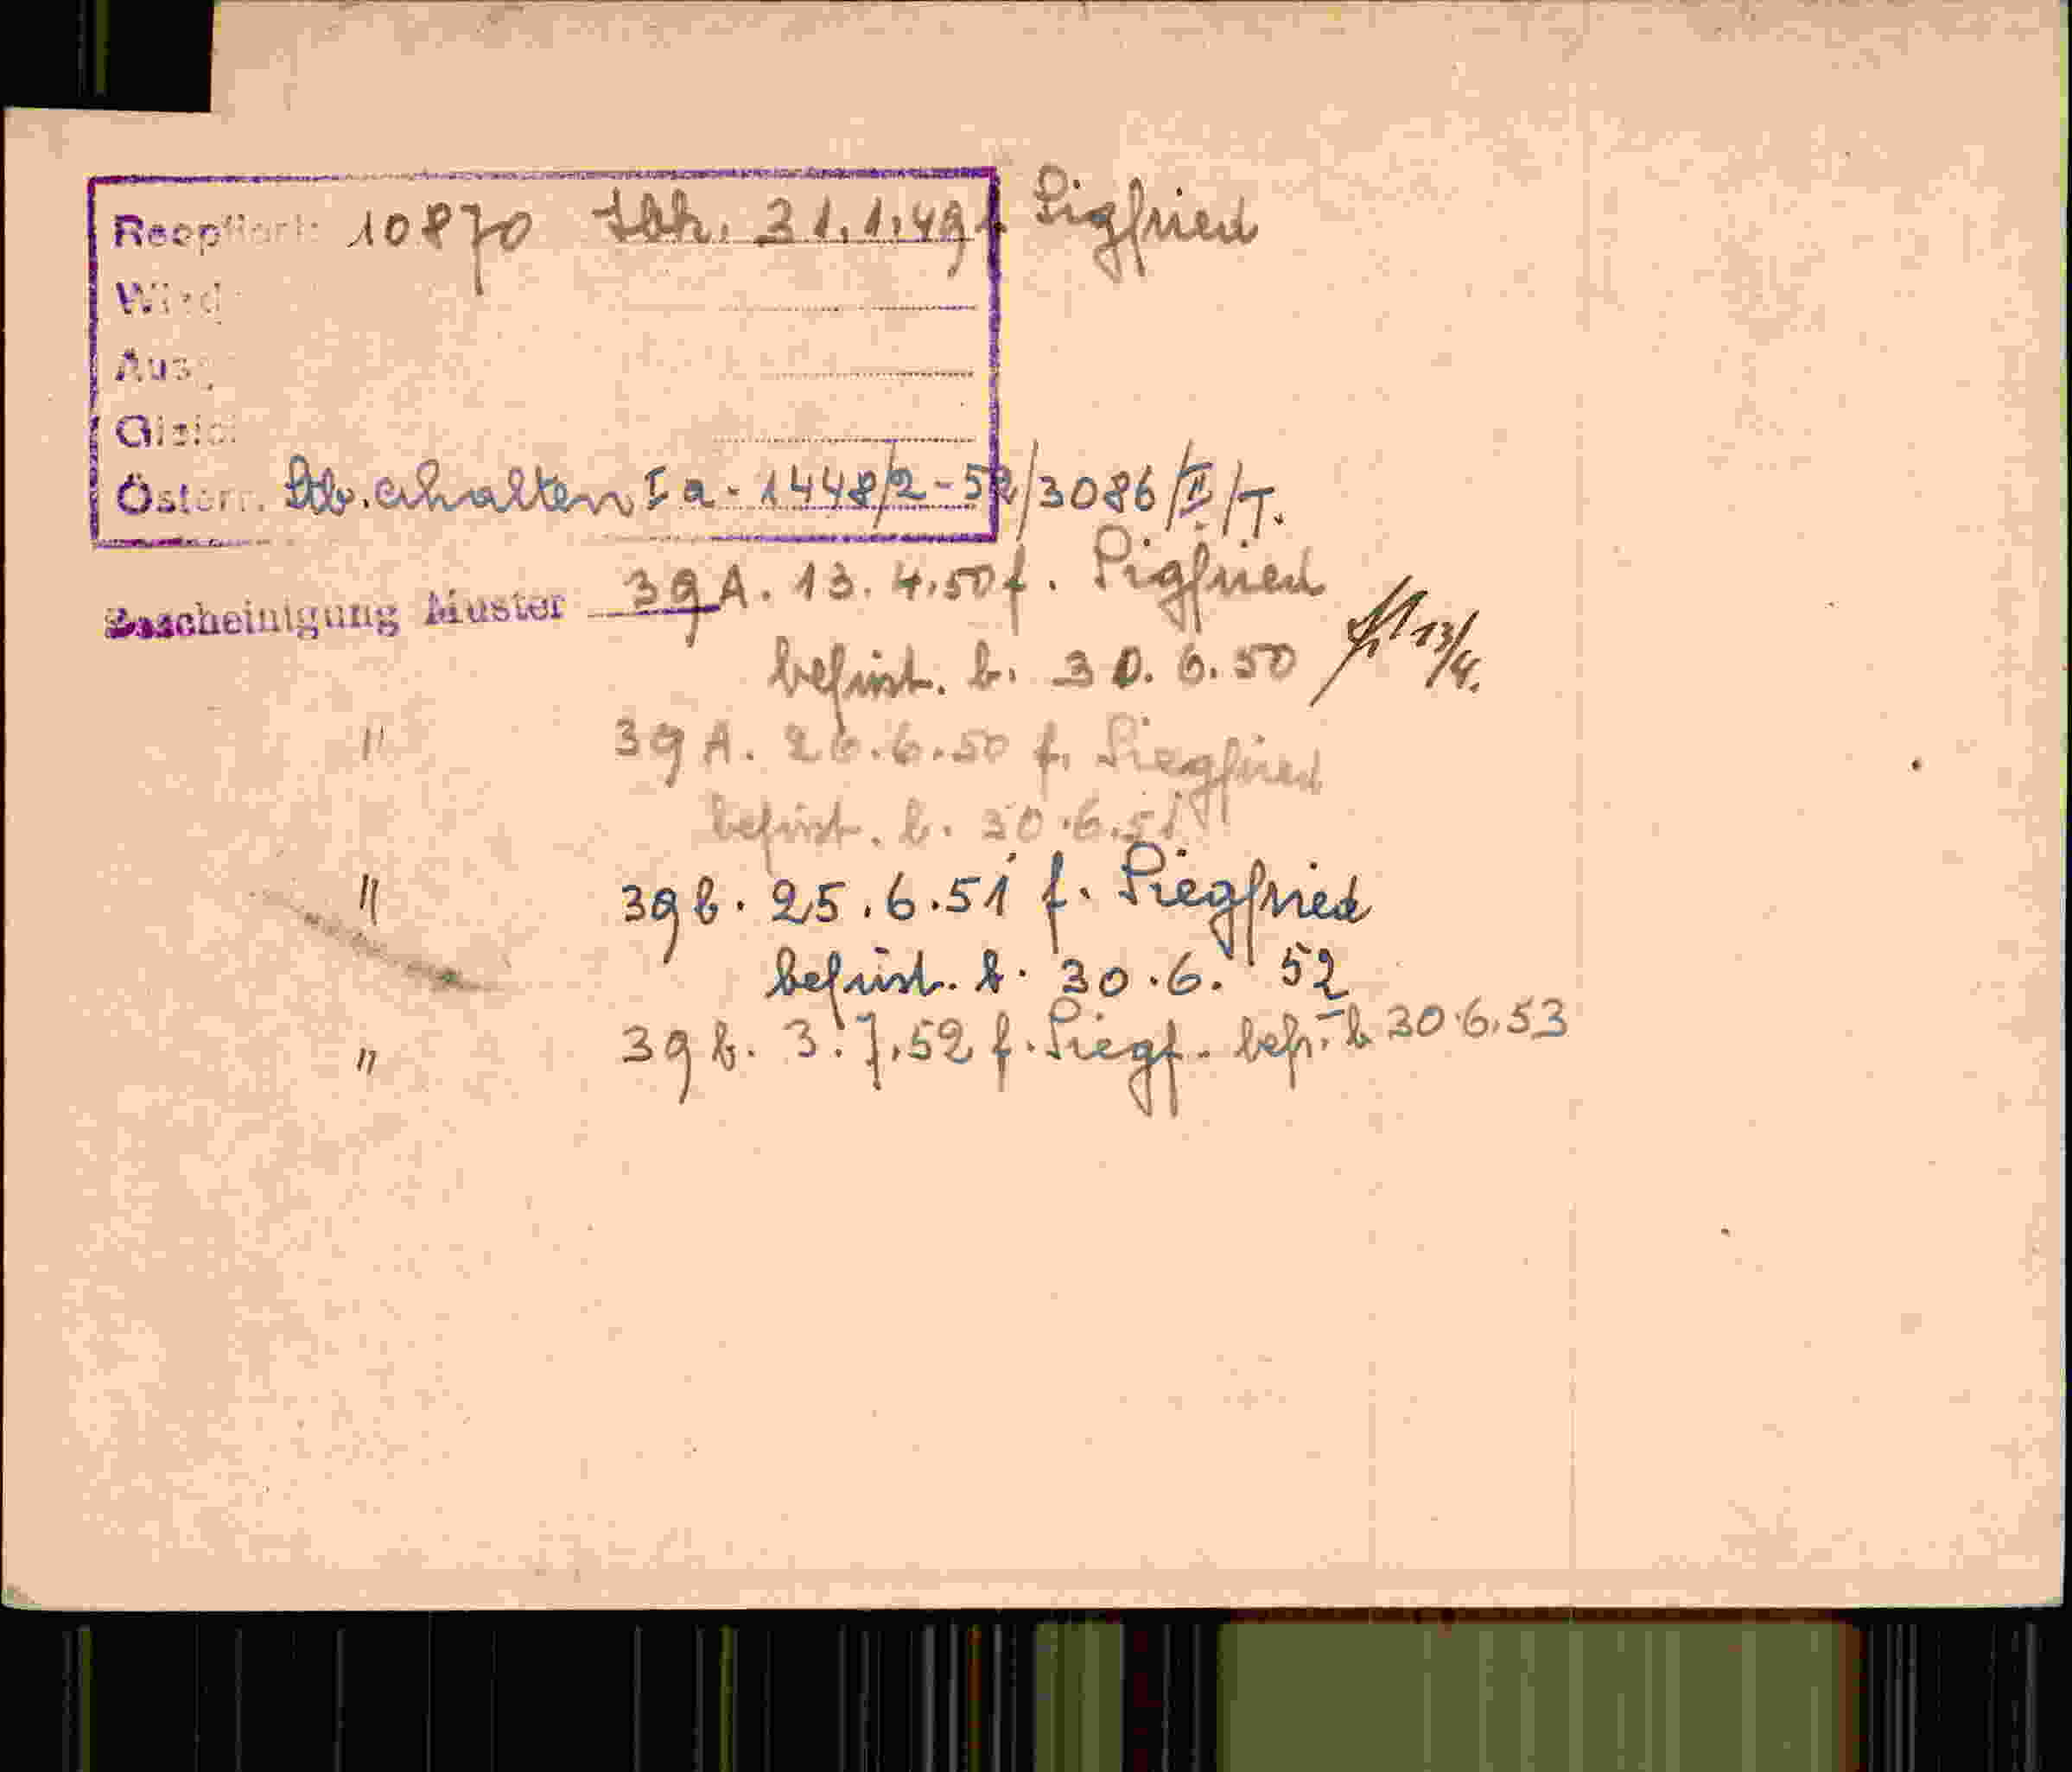 10870 Idk. 31.1.49 f. Sigfried
Wird
Ausg
Gleic
Österr. Stb. erhalten I a - 1448/2-52/3086/II/T.
Bescheinigung Muster 39 A. 13.4.50 f. Sigfried
befrist. b. 30.6.50 13/4.
" 39 A. 26.6.50 f. Siegfried
befrist. b. 30.6.51
" 39 b. 25.6.51 f. Siegfried
befrist. b. 30.6.52
" 39 b. 3.7.52 f. Siegf. befr. b 30.6.53